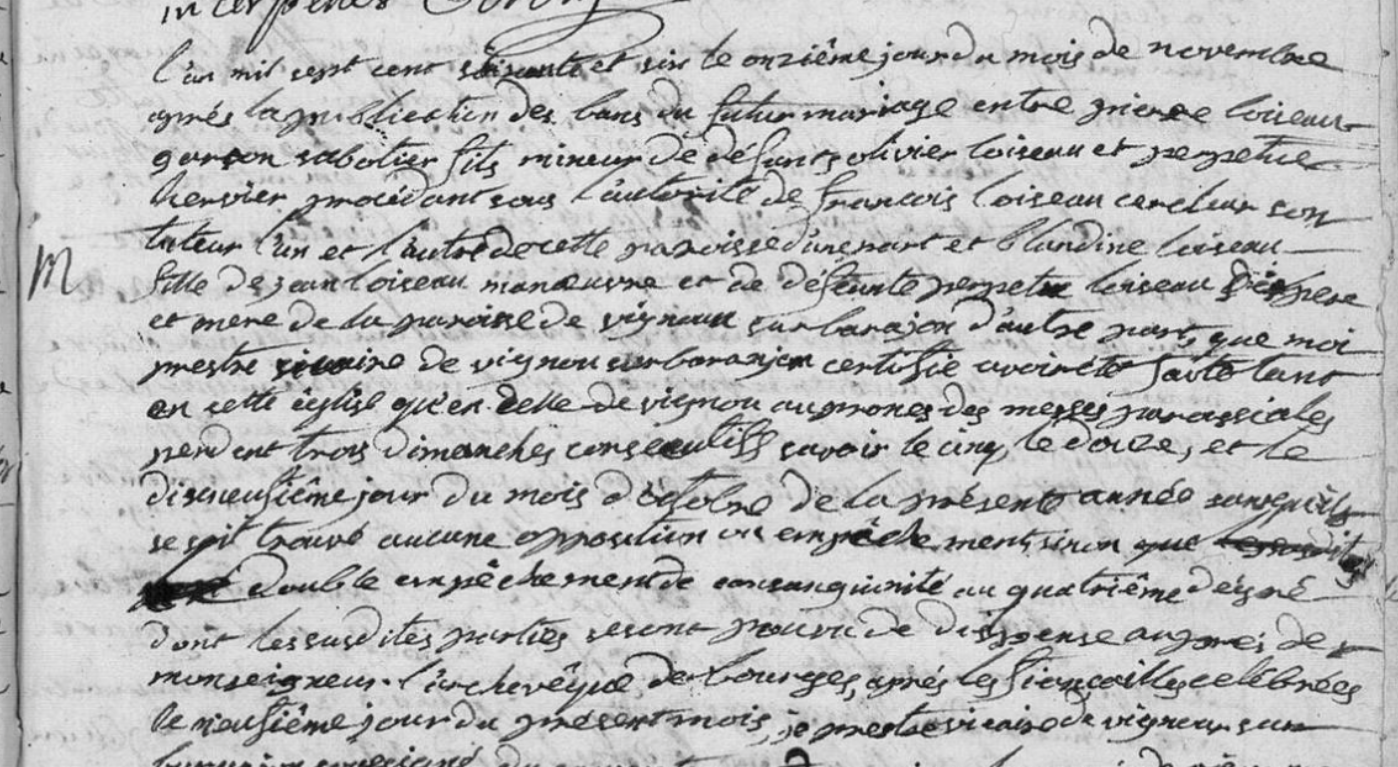 l'an mil sept cent soixante et six le onziême jour du mois de novembre
aprés la publication des bans du futur mariage entre pierre loiseau
garson sabotier fils mineur de défunts olivier loiseau et perpetue
hervier procédant sous l'autorité de francois loiseau cercleur son
tuteur l'un et l'autre de cette paroisse d'une part et blandine loiseau
M
fille de jean loiseau manœuvre et de défunte perpetue loiseau pere
et mere de la paroisse de vignou sur barajon d'autre part, que moi
prestre vicaire de vignou sur baranjon certifie avoir été faite tant
en cette église qu'en celle de vignou aux prones des messes paroissiales
pendent trois dimanches consecutifs savoir le cinq, le douze, et le
disneufiême jour du mois d'octobre de la présente année sans qu'ils
se soit trouvé aucune opposition ou empêchement sinon que
double empêchement de consanguinité au quatriême dégré
dont les susdites parties se sont pourvu de dispense auprés de
monseigneur l'archevêque de bourges, aprés les fiancailles celébrées
le neufiême jour du présent mois, je prestre vicaire de vignou sur